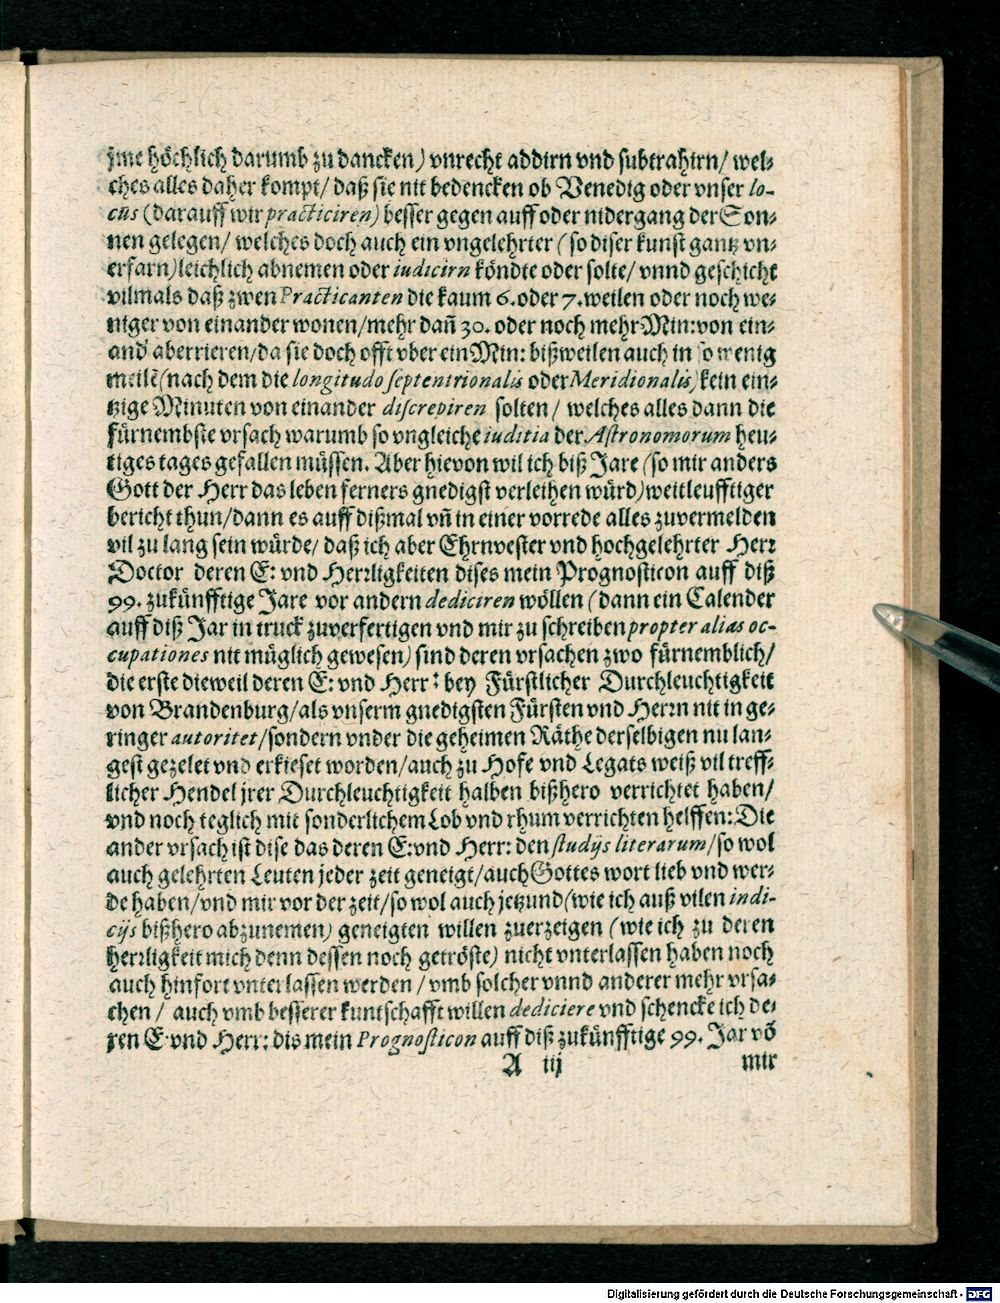 jme höchlich darumb zu dancken) vnrecht addirn vnd subtrahirn/ wel⸗
ches alles daher kompt/ daß sie nit bedencken ob Venedig oder vnser lo-
cus (darauff wir practiciren) besser gegen auff oder nidergang der Son⸗
nen gelegen/ welches doch auch ein vngelehrter (so diser kunst gantz vn⸗
erfarn) leichlich abnemen oder iudicirn köndte oder solte/ vnnd geschicht
vilmals daß zwen Practicanten die kaum 6. oder 7. weilen oder noch we⸗
niger von einander wonen/ mehr dañ 30. oder noch mehr Min: von ein⸗
and' aberrieren/ da sie doch offt vber ein Min: bißweilen auch in so wenig
meilē (nach dem die longitudo septentrionalis oder Meridionalis) kein ein⸗
tzige Minuten von einander discrepiren solten/ welches alles dann die
fürnembste vrsach warumb so vngleiche iuditia der Astronomorum heu⸗
tiges tages gefallen müssen. Aber hievon wil ich biß Jare (so mir anders
Gott der Herr das leben ferners gnedigst verleihen würd) weitleufftiger
bericht thun/ dann es auff dißmal vñ in einer vorrede alles zuvermelden
vil zu lang sein würde/ daß ich aber Ehrnvester vnd hochgelehrter Herr
Doctor deren E: vnd Herrligkeiten dises mein Prognosticon auff diß
99. zukünfftige Jare vor andern dediciren wöllen (dann ein Calender
auff diß Jar in truck zuverfertigen vnd mir zu schreiben propter alias oc-
cupationes nit müglich gewesen) sind deren vrsachen zwo fürnemblich/
die erste dieweil deren E: vnd Herr: bey Fürstlicher Durchleuchtigkeit
von Brandenburg/ als vnserm gnedigsten Fürsten vnd Herrn nit in ge⸗
ringer autoritet/ sondern vnder die geheimen Räthe derselbigen nu lan⸗
gest gezelet vnd erkieset worden/ auch zu Hofe vnd Legats weiß vil treff⸗
licher Hendel jrer Durchleuchtigkeit halben bißhero verrichtet haben/
vnd noch teglich mit sonderlichem Lob vnd rhum verrichten helffen: Die
ander vrsach ist dise das deren E: vnd Herr: den studijs literarum/ so wol
auch gelehrten Leuten jeder zeit geneigt/ auch Gottes wort lieb vnd wer⸗
de haben/ vnd mir vor der zeit/ so wol auch jetzund (wie ich auß vilen indi-
cijs bißhero abzunemen) geneigten willen zuerzeigen (wie ich zu deren
herrligkeit mich denn dessen noch getröste) nicht vnterlassen haben noch
auch hinfort vnterlassen werden/ vmb solcher vnnd anderer mehr vrsa⸗
chen/ auch vmb besserer kuntschafft willen dediciere vnd schencke ich de⸗
ren E. vnd Herr: dis mein Prognosticon auff diß zukünfftige 99. Jar võ
A iij mir
Digitalisierung gefördert durch die Deutsche Forschungsgemeinschaft - DFG